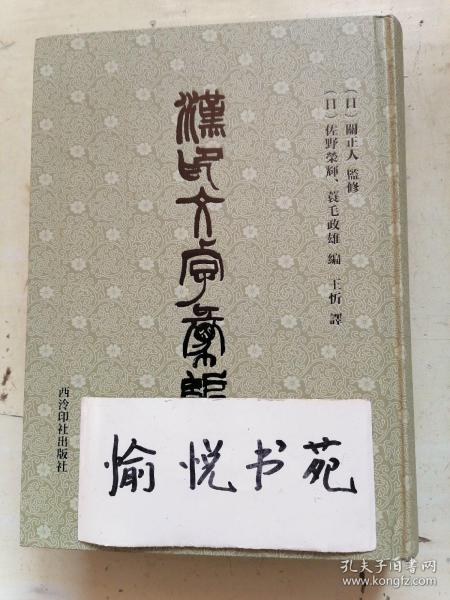 〔日〕關正人 監修
〔日〕佐野榮輝、蓑毛政雄 編 王忻 譯
漢印文字彙編
西泠印社出版社
愉悦书苑
孔夫子旧书网
www.kongfz.com